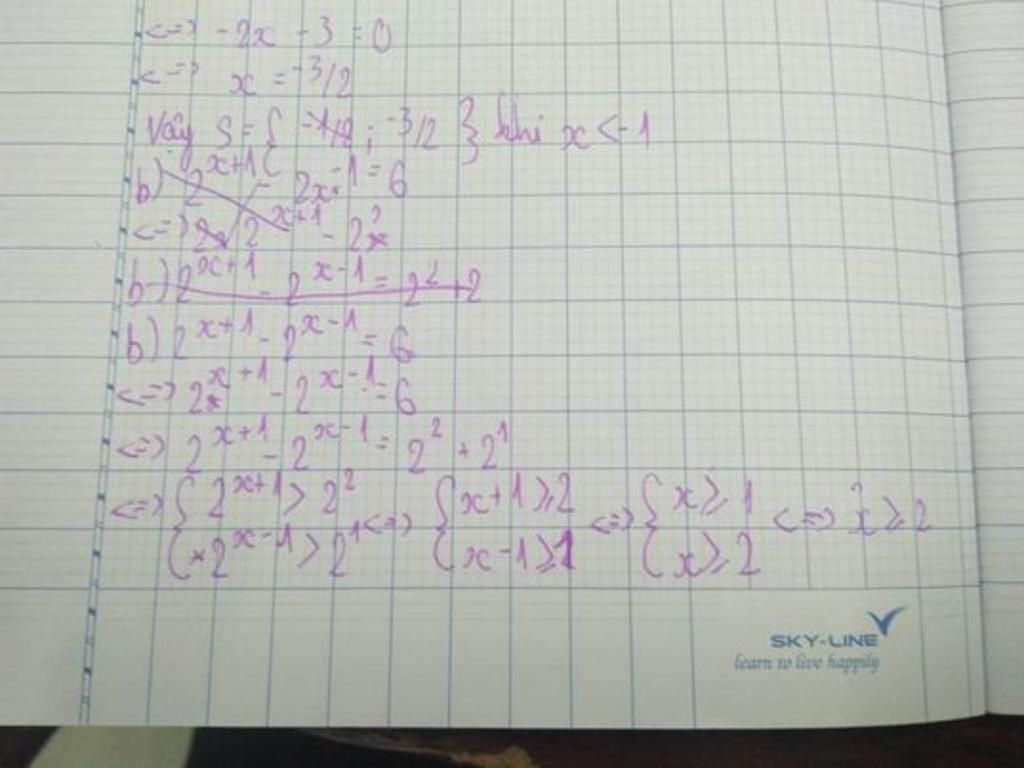 <=> -2x - 3 = 0
<=> x = -3/2
Vậy S = { -1/2 ; -3/2 } khi x < -1
b) 2^{x+1} - 2x^{-1} = 6
<=> 2^{x+1} - 2^x
b) 2^{x+1} - 2^{x-1} = 2^2 + 2
b) 2^{x+1} - 2^{x-1} = 6
<=> 2^{x+1} - 2^{x-1} = 6
<=> 2^{x+1} - 2^{x-1} = 2^2 + 2^1
<=> { 2^{x+1} > 2^2 <=> { x+1 ⩾ 2 <=> { x ⩾ 1 <=> x ⩾ 2
2^{x-1} > 2^1 x-1 ⩾ 1 x ⩾ 2
SKY-LINE
learn to live happily